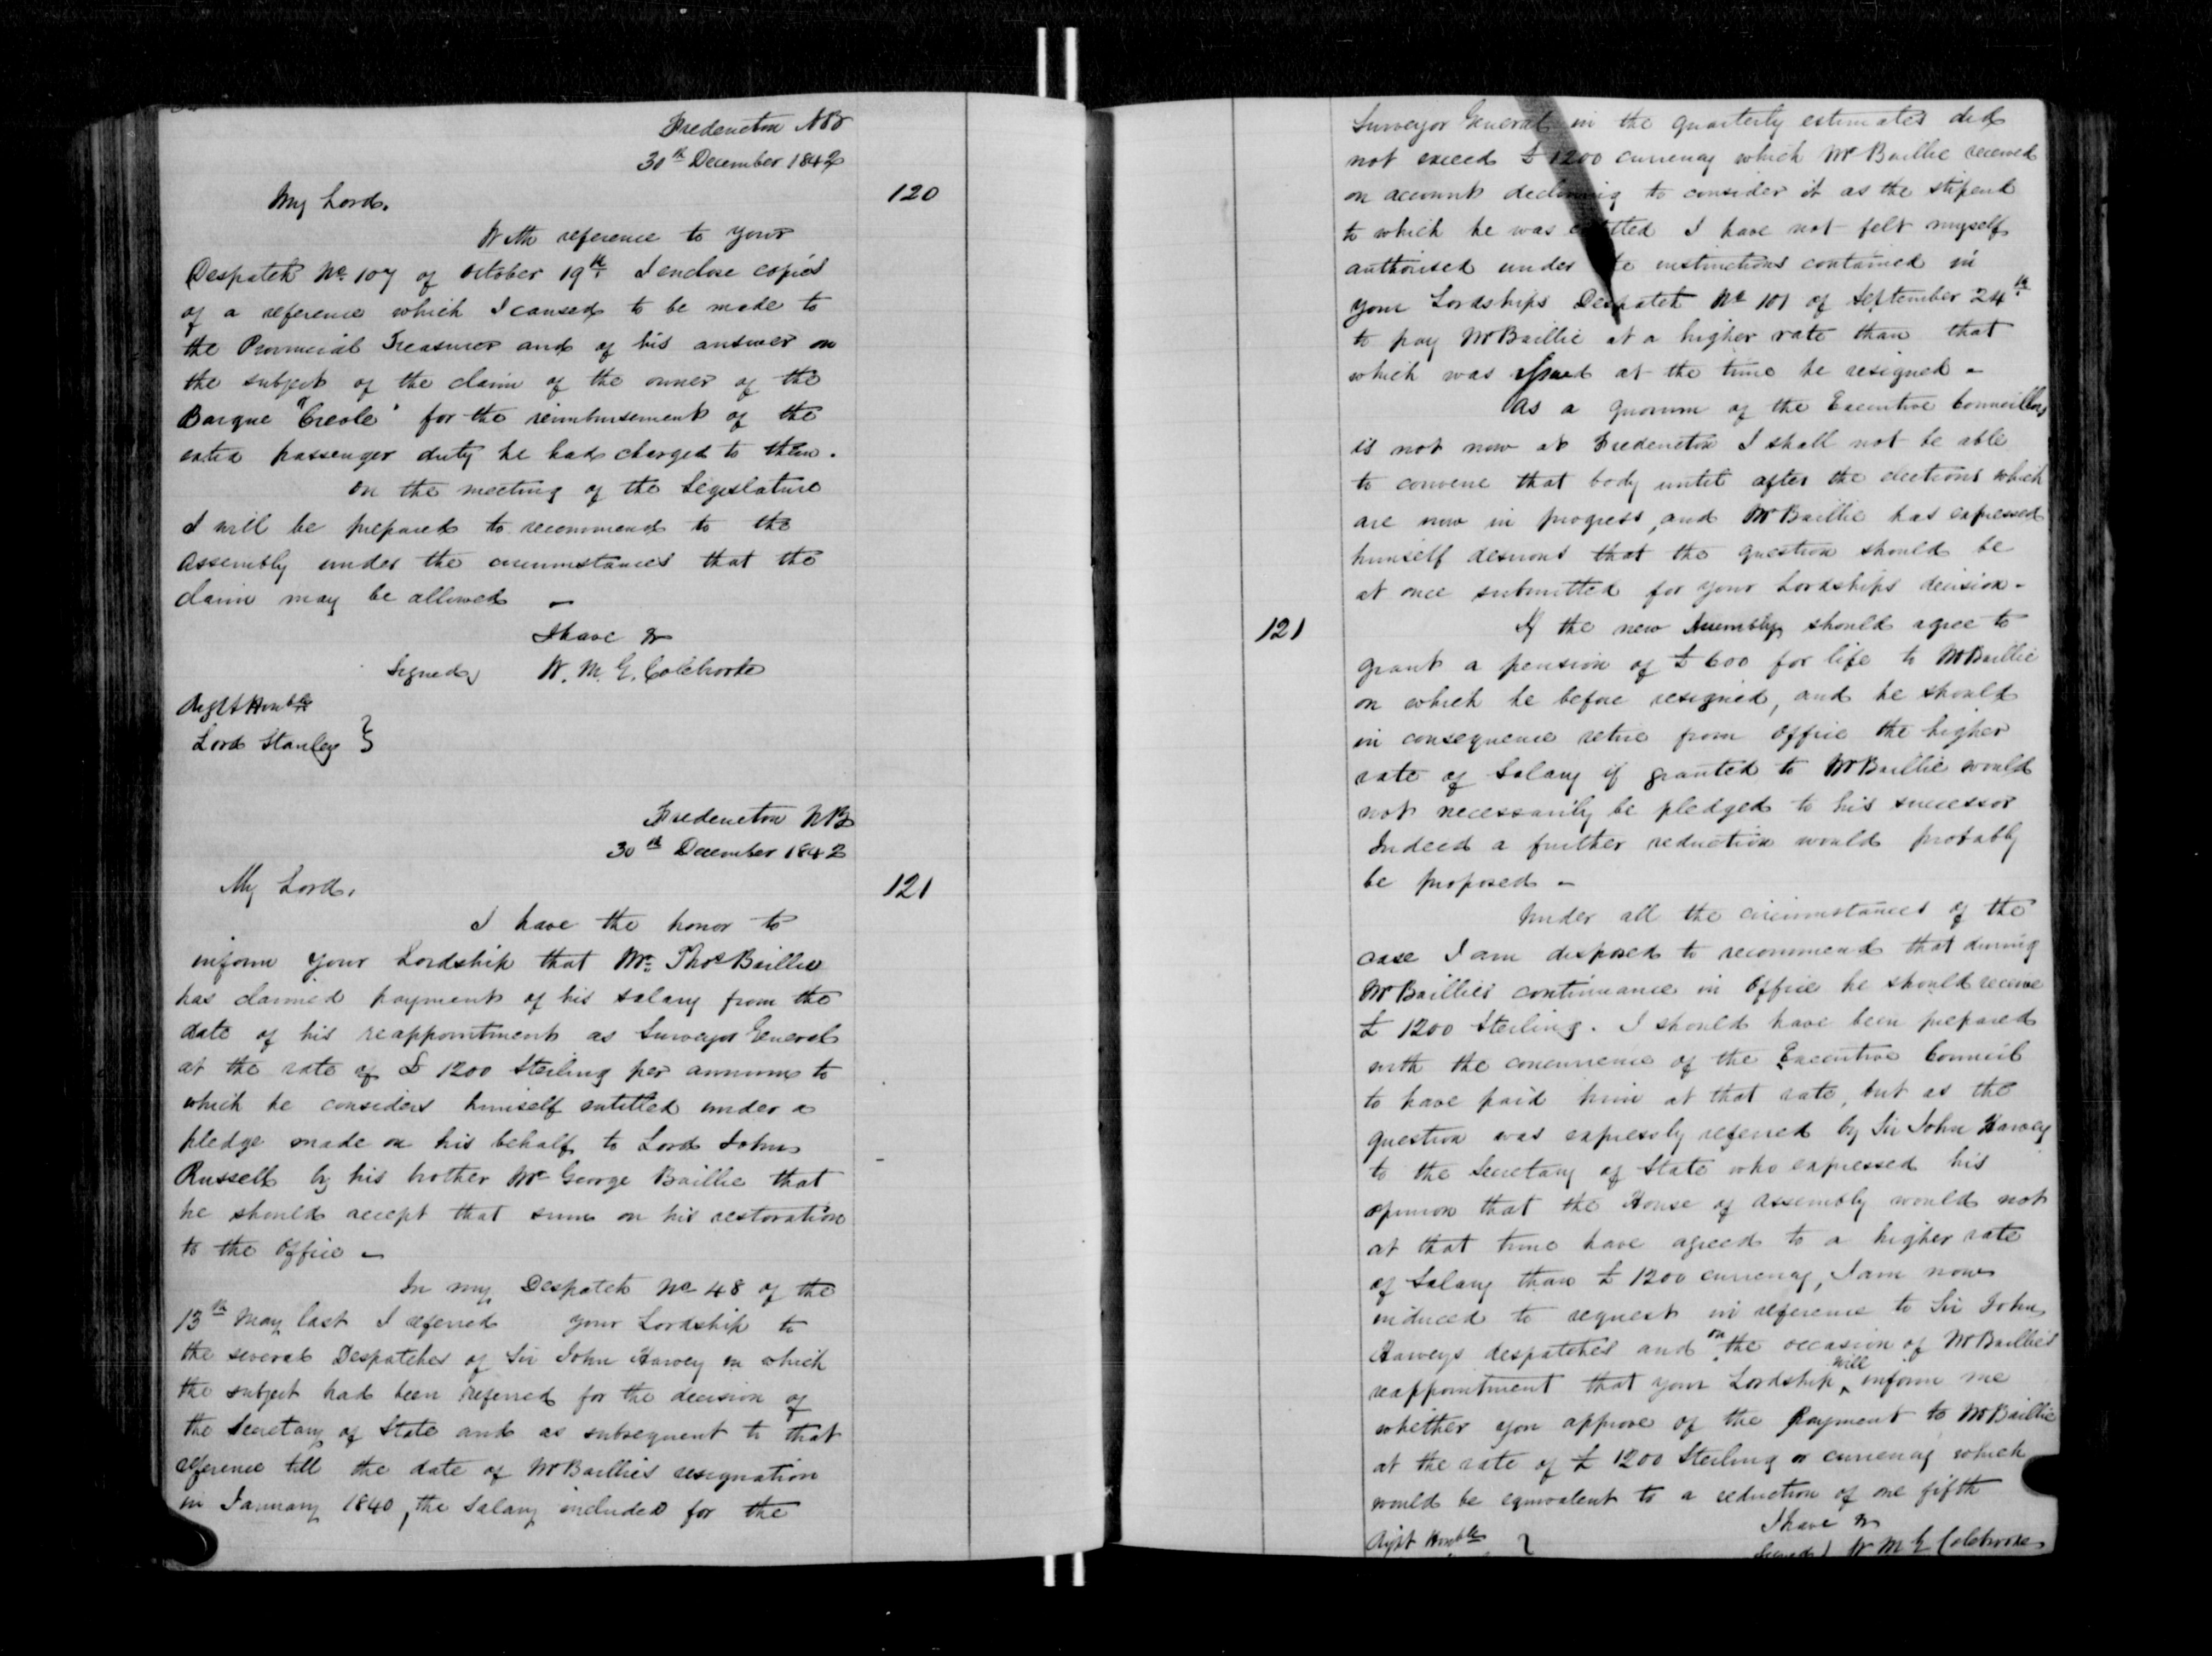 Fredericton NB
30th December 1842
120
My Lord.
With reference to your
Despatch No 107 of October 19th I enclose copies
of a reference which I caused to be made to
the Provincial Treasurer and of his answer on
the subject of the claim of the owner of the
Barque "Creole" for the reimbursement of the
extra passenger duty he had charged to them.
On the meeting of the Legislature
I will be prepared to recommend to the
Assembly under the circumstances that the
claim may be allowed –
I have &
Signed W. M. G. Colebrooke
Right Honble
Lord Stanley }
Fredericton NB
30th December 1842
121
My Lord,
I have the honor to
inform your Lordship that Mr. Thos Baillie
has claimed payment of his salary from the
date of his reappointment as Surveyor General
at the rate of £ 1200 Sterling per annum to
which he considers himself entitled under a
pledge made on his behalf to Lord John
Russell by his brother Mr George Baillie that
he should accept that sum on his restoration
to the Office –
In my Despatch No 48 of the
13th May last I referred your Lordship to
the several Despatches of Sir John Harvey in which
the subject had been referred for the decision of
the Secretary of State and as subsequent to that
reference till the date of Mr Baillie's resignation
in January 1840, the salary included for the
Surveyor General in the quarterly estimates did
not exceed £ 1200 currency which Mr Baillie received
on account declining to consider it as the stipend
to which he was entitled I have not felt myself
authorised under the instructions contained in
your Lordships Despatch No 101 of September 24th
to pay Mr Baillie at a higher rate than that
which was issued at the time he resigned –
As a quorum of the Executive Councillors
is not now at Fredericton I shall not be able
to convene that body until after the elections which
are now in progress, and Mr Baillie has expressed
himself desirous that the question should be
at once submitted for your Lordships decision –
121
If the new Assembly should agree to
grant a pension of £ 600 for life to Mr Baillie
on which he before resigned, and he should
in consequence retire from Office the higher
rate of Salary if granted to Mr Baillie would
not necessarily be pledged to his successor
Indeed a further reduction would probably
be proposed –
Under all the circumstances of the
case I am disposed to recommend that during
Mr Baillies continuance in Office he should receive
£ 1200 Sterling. I should have been prepared
with the concurrence of the Executive Council
to have paid him at that rate, but as the
question was expressly referred by Sir John Harvey
to the Secretary of State who expressed his
opinion that the House of Assembly would not
at that time have agreed to a higher rate
of Salary than £ 1200 currency, I am now
induced to request in reference to Sir John
Harveys despatches and on the occasion of Mr Baillies
reappointment that your Lordship will inform me
whether you approve of the Payment to Mr Baillie
at the rate of £ 1200 Sterling or currency which
would be equivalent to a reduction of one fifth
I have &
Right Honble }
Signed) W M G Colebrooke